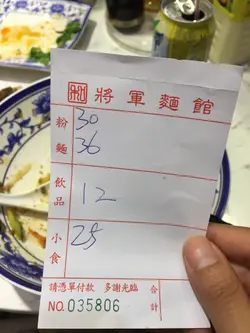 將軍麵館
粉麵
30
36
飲品
12
小食
25
請憑單付款 多謝光臨
合計
NO.035806